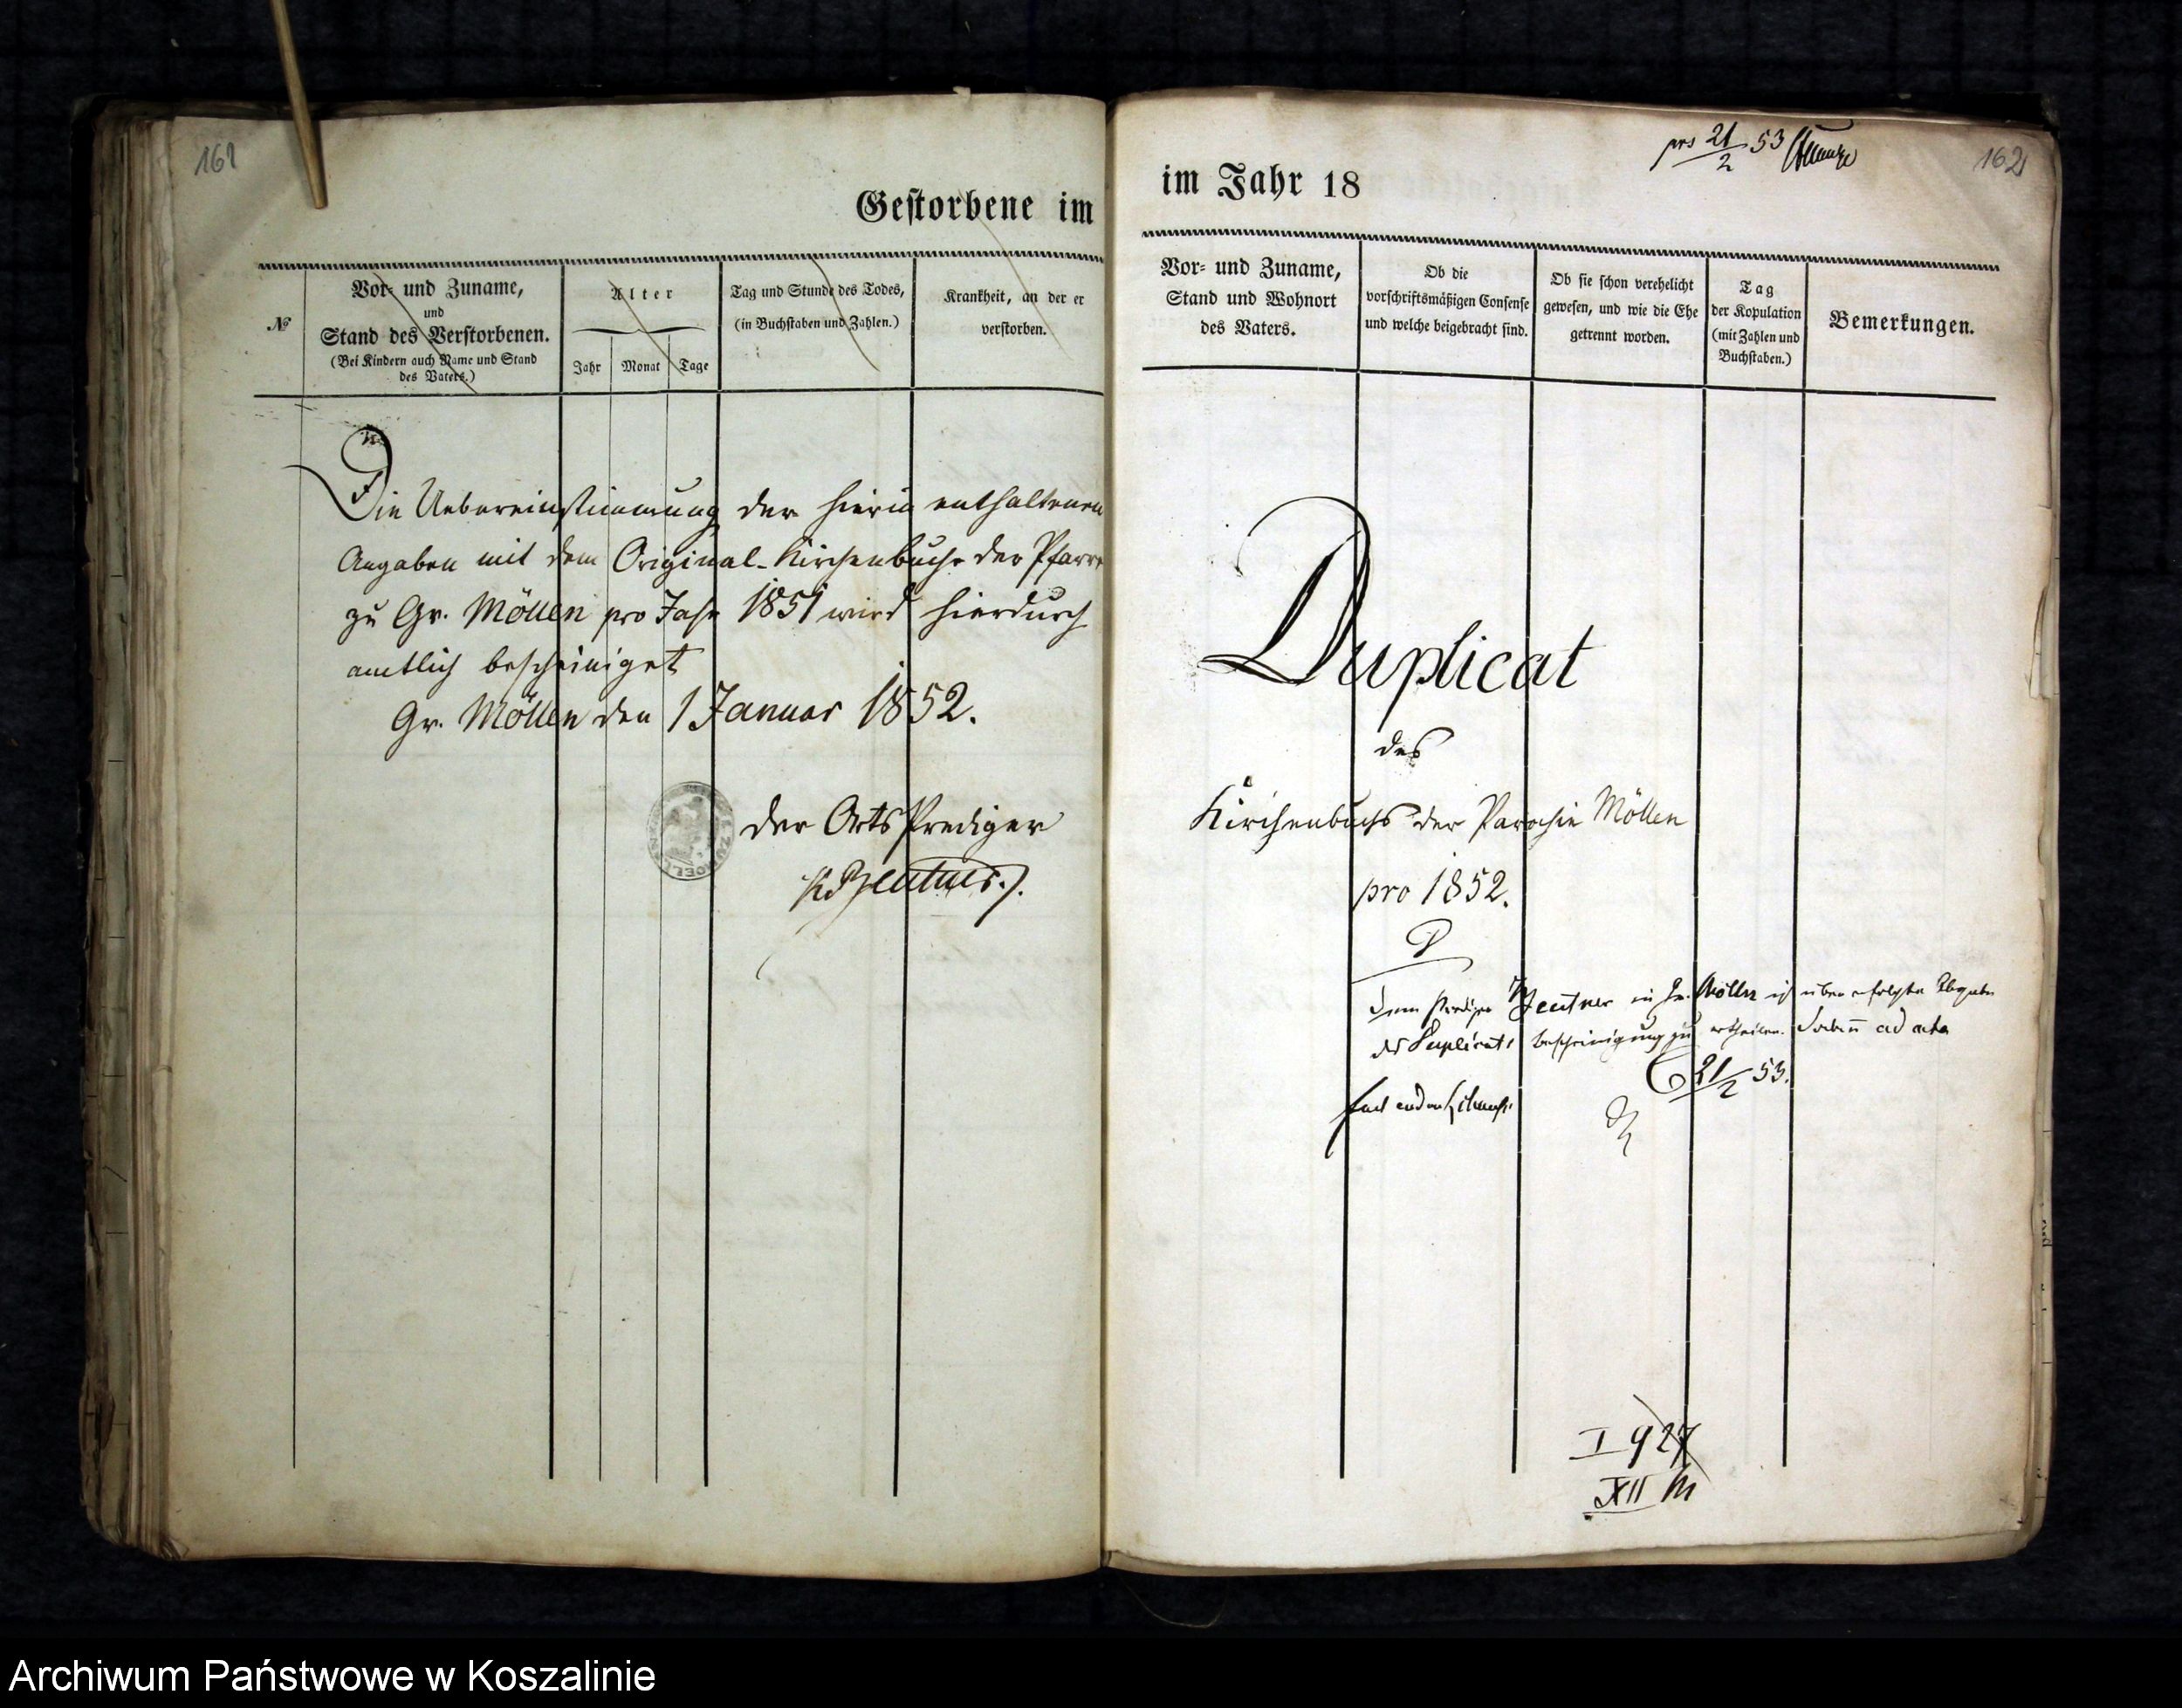 161
Gestorbene im
№
Vor- und Zuname,
und
Stand des Verstorbenen.
(Bei Kindern auch Name und Stand
des Vaters.)
Alter
Jahr Monat Tage
Tag und Stunde des Todes,
(in Buchstaben und Zahlen.)
Krankheit, an der er
verstorben.
Die Uebereinstimmung der hierin enthaltenen
Angaben mit dem Original-Kirchenbuche der Pfarre
zu Gr. Möllen pro Jahr 1851 wird hierdurch
amtlich bescheiniget
Gr. Möllen den 1 Januar 1852.
Der Orts Prediger
Zentner.
im Jahr 18
prs 21/2 53
162
Vor- und Zuname,
Stand und Wohnort
des Vaters.
Ob die
vorschriftsmäßigen Consense
und welche beigebracht sind.
Ob sie schon verehelicht
gewesen, und wie die Ehe
getrennt worden.
Tag
der Kopulation
(mit Zahlen und
Buchstaben.)
Bemerkungen.
Duplicat
des
Kirchenbuchs der Parochie Möllen
pro 1852.
Dem Prediger Zentner in Gr. Möllen ist über erfolgte Abgabe
des Duplicats Bescheinigung zu ertheilen. ad acta
21/2 53.
I 927
XII M
Archiwum Państwowe w Koszalinie